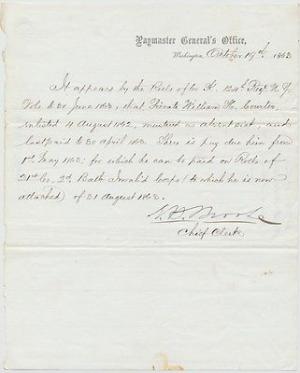 Paymaster General's Office,
Washington, October 19th, 1863
It appears by the Rolls of Co. K. Regt N. Y.
Vols to 30 June 1863, that Private William H.
enlisted 4 August 1862, mustered as absent sick, and
last paid to 30 April 1863. There is pay due him from
1st May 1863, for which he can be paid on Rolls of
21st Co. 2d. Batt. Invalid Corps (to which he is now
attached) of 31 August 1863.
Chief Clerk